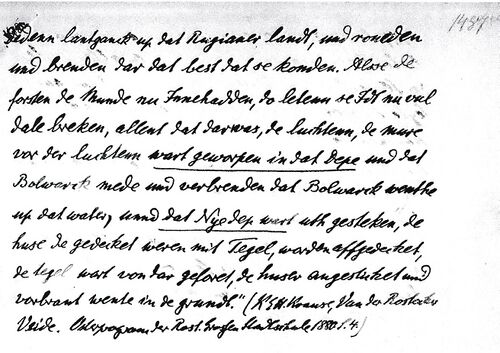 1487
eedenn lantganck up dat Rugianer landt, und roveden
und brenden dar dat best dat se konden. Alse de
forsten de Munde nu Innehadden, do letenn se Idt nu vul
dale breken, allent dat dar was, de luchtenn, de mure
vor der luchtenn wart geworpen in dat depe und dat
Bolwarck mede und verbrenden dat Bolwarck wenthe
up dat water, unnd dat Nye dep wart uth gesteken, de
huse de gedecket weren mit Tegel, worden affgedecket,
de tegel wart von dar geforet, de huser angesticket und
vorbrant wente in de grundt." (K. E. H. Krause, Van der Rostocker
Veide. Osterprogram der Rost. Großen Stadtschule 1880 S. 4.)